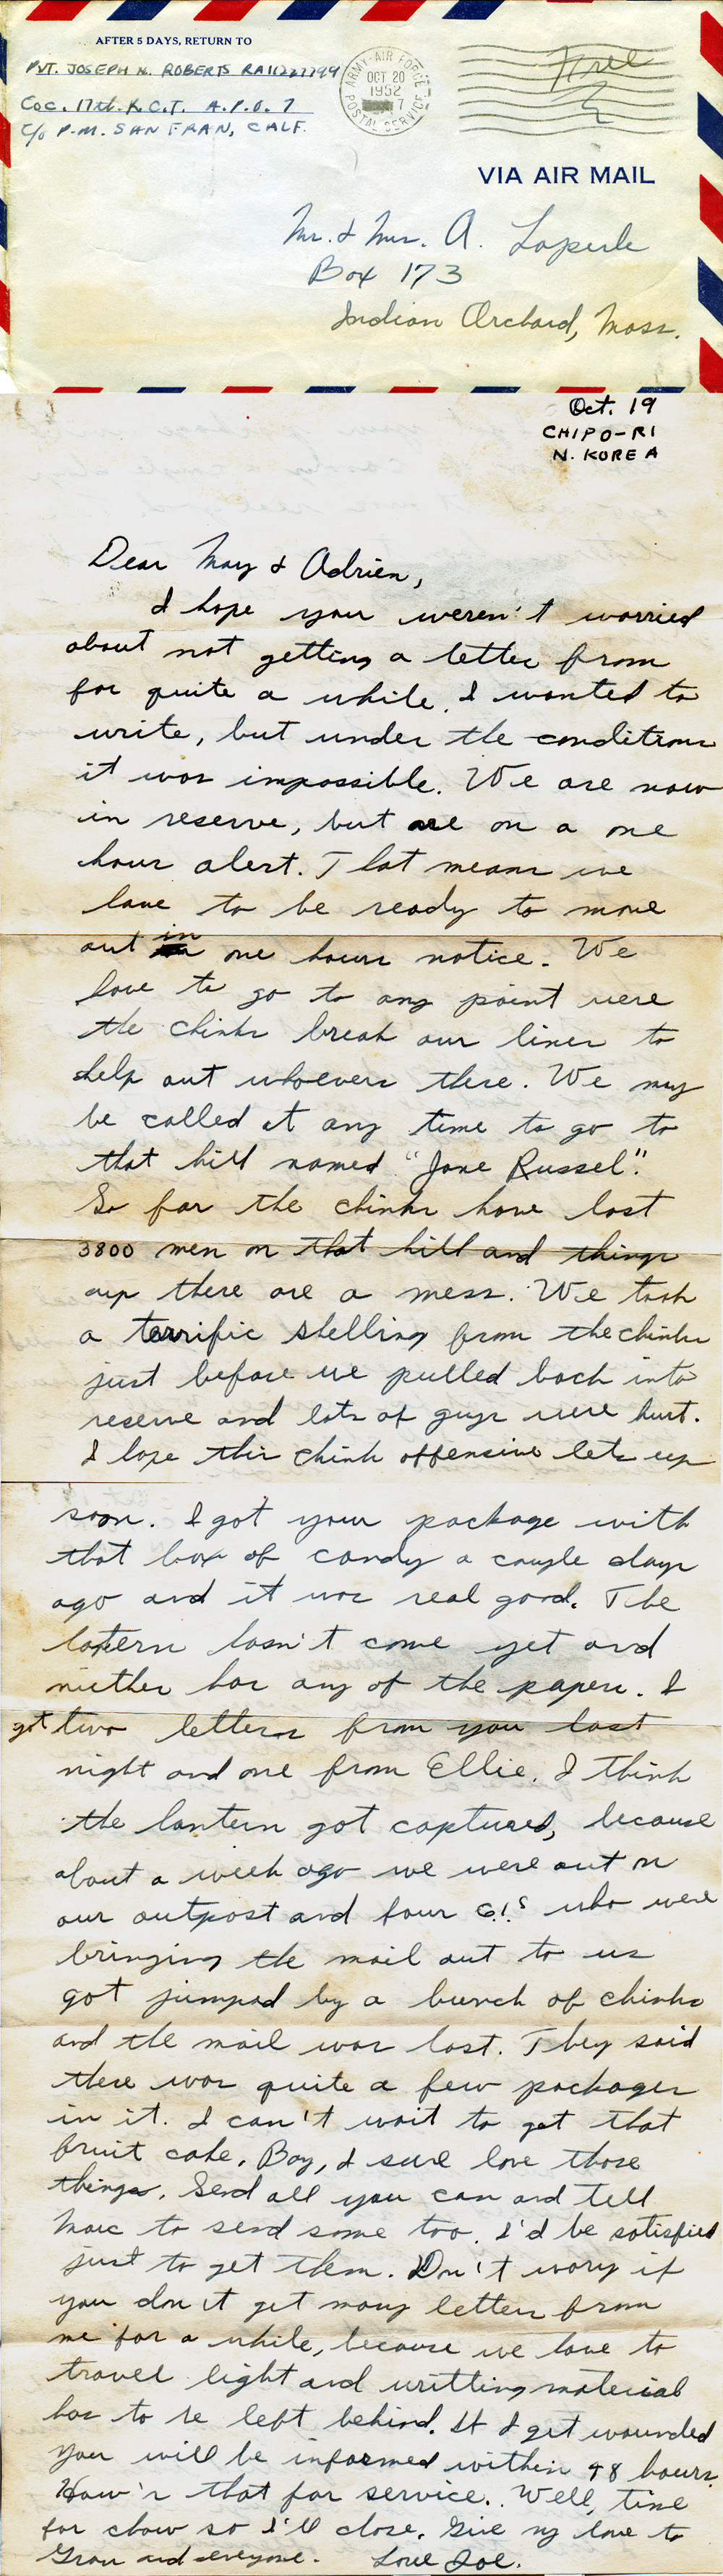 AFTER 5 DAYS, RETURN TO
PVT. JOSEPH N. ROBERTS
Co C. 17th. R.C.T. A.P.O. 7
C/o P.M. SAN FRAN, CALF.
ARMY-AIR FORCE
OCT 20
1952
7
POSTAL SERVICE
Free
VIA AIR MAIL
Mr. & Mrs. A. Laperle
Box 173
Indian Orchard, Mass.
Oct. 19
CHIPO-RI
N. KOREA
Dear May & Adrien,
I hope you weren't worried
about not getting a letter from
for quite a while. I wanted to
write, but under the conditions
it was impossible. We are now
in reserve, but are on a one
hour alert. That means we
have to be ready to move
out in one hours notice. We
have to go to any point were
the chinks break our lines to
help out whoevers there. We may
be called at any time to go to
that hill named "Jane Russel".
So far the chinks have lost
3800 men on that hill and things
up there are a mess. We took
a terrific shelling from the chinks
just before we pulled back into
reserve and lots of guys were hurt.
I hope this chink offensive lets up
soon. I got your package with
that box of candy a couple days
ago and it was real good. The
lantern hasn't come yet and
niether has any of the papers. I
got two letters from you last
night and one from Ellie. I think
the lantern got captured, because
about a week ago we were out on
our outpost and four G.I.s who were
bringing the mail out to us
got jumped by a bunch of chinks
and the mail was lost. They said
there was quite a few packages
in it. I can't wait to get that
fruit cake. Boy, I sure love those
things. Send all you can and tell
Marc to send some too. I'd be satisfied
just to get them. Don't worry if
you don't get many letters from
me for a while, because we have to
travel light and writting material
has to be left behind. If I get wounded
you will be informed within 48 hours.
How's that for service. Well, time
for chow so I'll close. Give my love to
Gram and everyone. Love Joe.